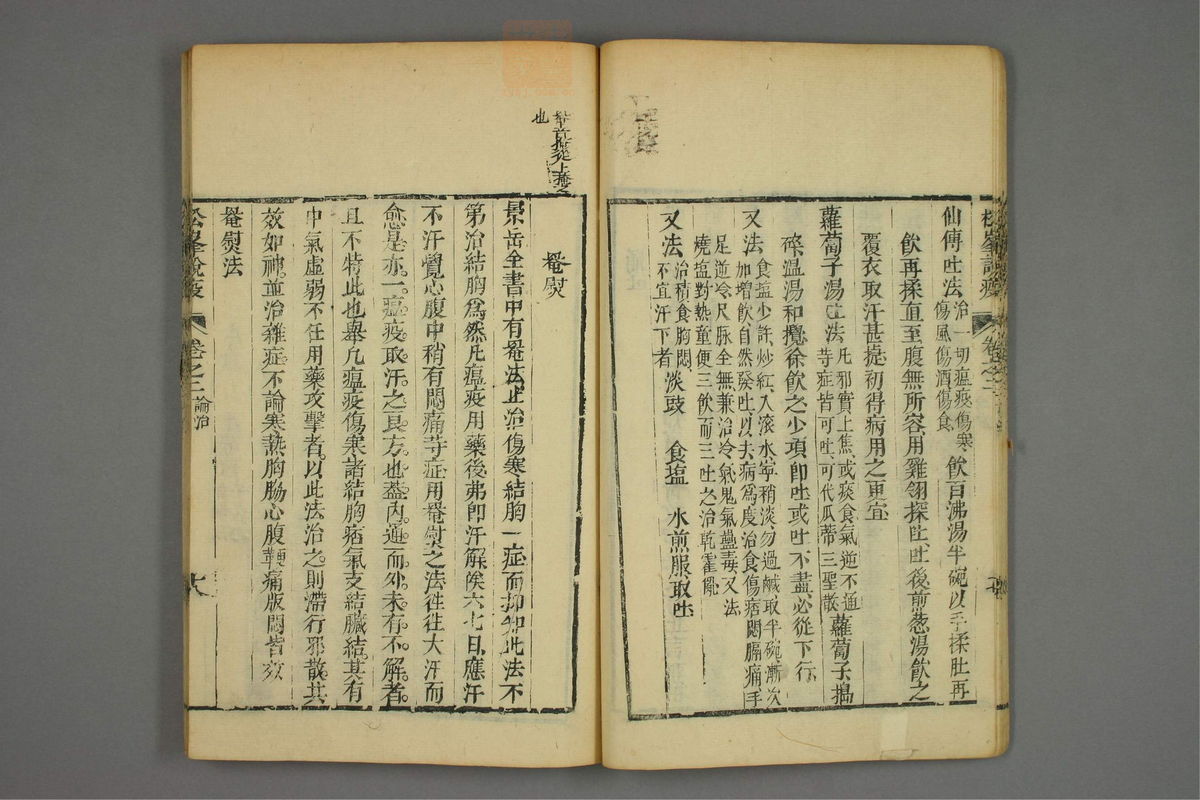 仙傳吐法治一切瘟疫傷寒
傷風傷酒傷食飲百沸湯半碗以手揉肚再
飲再揉直至腹無所容用雞翎探吐吐後煎葱湯飲之
覆衣取汗甚捷初得病用之更宜
蘿蔔子湯吐法凡邪實上焦或痰食氣逆不通
等症皆可吐可代瓜蒂三聖散蘿蔔子搗
碎溫湯和攪徐飲之少項卽吐或吐不盡必從下行
又法食塩少許炒紅入滾水寧稍淡勿過鹹取半碗漸次
加增飲自然發吐以去病爲度治食傷痞悶膈痛手
足逆冷尺脉全無兼治冷氣鬼氣蠱毒又法
燒塩對熱童便三飲而三吐之治乾霍亂
又法治積食胸悶
不宜汗下者淡豉 食塩 水煎服取吐
松峯說疫 卷之三 論治
罨熨
景岳全書中有罨法止治傷寒結胸一症而抑知此法不
第治結胸爲然凡瘟疫用藥後弗卽汗解俟六七日應汗
不汗覺心腹中稍有悶痛等症用罨熨之法徃徃大汗而
愈是亦一瘟疫取汗之良方也葢內通而外未有不解者
且不特此也舉凡瘟疫傷寒諸結胸痞氣支結臟結其有
中氣虛弱不任用藥攻擊者以此法治之則滯行邪散其
效如神並治雜症不論寒熱胸膈心腹鞕痛版悶皆效
罨熨法
松峯說疫 卷之三 論治
也